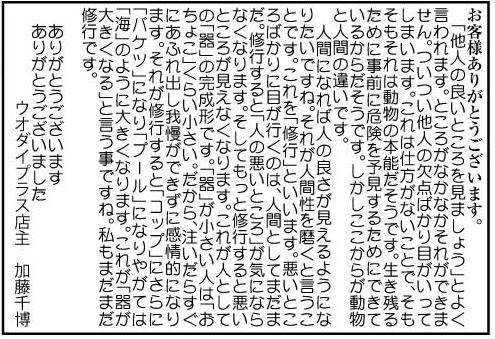 お客様ありがとうございます。
「他人の良いところを見ましょう」とよく
言われます。ところがなかなかそれができま
せん。ついつい他人の欠点ばかり目がいって
しまいます。これは仕方がないことで、そも
そもそれは動物の本能だそうです。生き残る
ために事前に危険を予見するためにできて
いるからだそうです。しかしここからが動物
と人間の違いです。
人間になれば人の良さが見えるようにな
りたいですね。それが人間性を磨くと言うこ
とです。これを「修行」といいます。悪いとこ
ろばかりに目が行くのは、人間としてまだま
だ。修行すると「人の悪いところ」が気になら
なくなります。そしてもっと修行すると悪い
ところが見えなくなります。これが人として
の「器」の完成形です。「器」が小さい人は「お
ちょこ」くらい小さい。だから、注いだらすぐ
にあふれ出し我慢ができずに感情的になり
ます。それが修行すると、「コップ」にさらに
「バケツ」になり「プール」になりやがては
「海」のように大きくなります。これが「器が
大きくなる」と言う事ですね。私もまだまだ
修行です。
ありがとうございます
ありがとうございました
ウオダイプラス店主 加藤千博